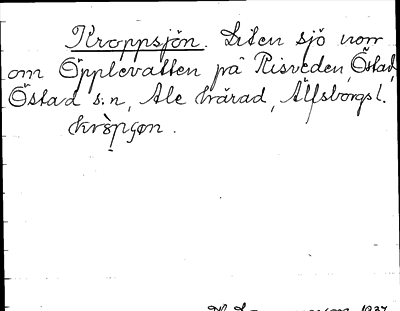 Kroppsjön. Liten sjö norr
om Öpplevatten på Risveden, Östad,
Östad s:n, Ale härad, Älfsborgs l.
kròpʃøn.
1927